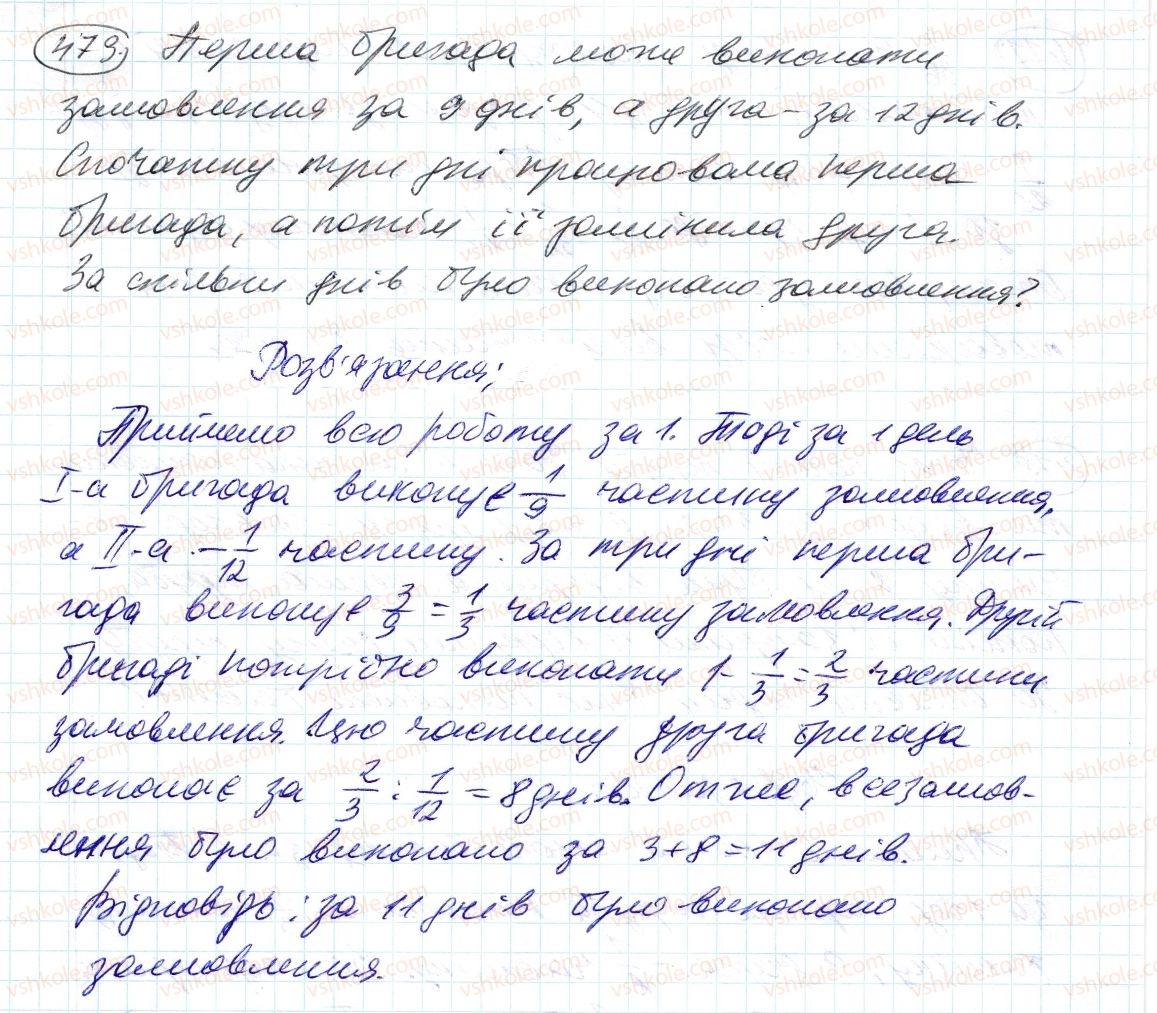 479. Перша бригада може виконати
замовлення за 9 днів, а друга - за 12 днів.
Спочатку три дні працювала перша
бригада, а потім її замінила друга.
За скільки днів було виконано замовлення?
Розв'язання:
Приймемо всю роботу за 1. Тоді за 1 день
I-а бригада виконує 1/9 частину замовлення,
а II-а - 1/12 частину. За три дні перша бри-
гада виконує 3/9 = 1/3 частину замовлення. Другій
бригаді потрібно виконати 1 - 1/3 = 2/3 частини
замовлення. Цю частину друга бригада
виконає за 2/3 : 1/12 = 8 днів. Отже, все замов-
лення було виконано за 3+8=11 днів.
Відповідь: за 11 днів було виконано
замовлення.